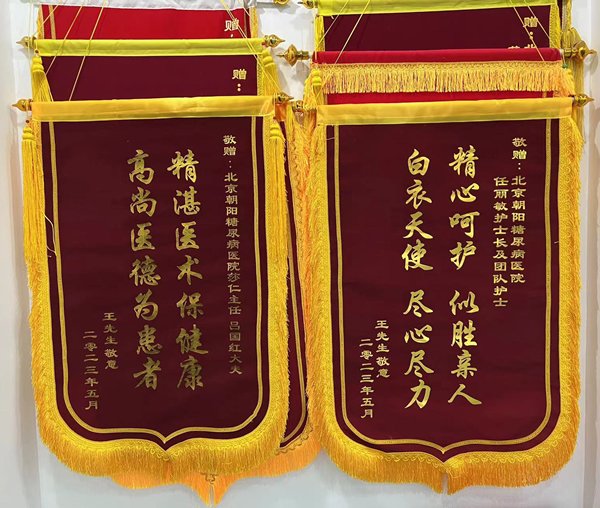 敬赠：北京朝阳糖尿病医院莎仁主任 吕国红大夫
精湛医术保健康
高尚医德为患者
王先生敬意
二零二三年五月
敬赠：北京朝阳糖尿病医院
任丽敏护士长及团队护士
精心呵护 似胜亲人
白衣天使 尽心尽力
王先生敬意
二零二三年五月
赠：
赠：
赠：